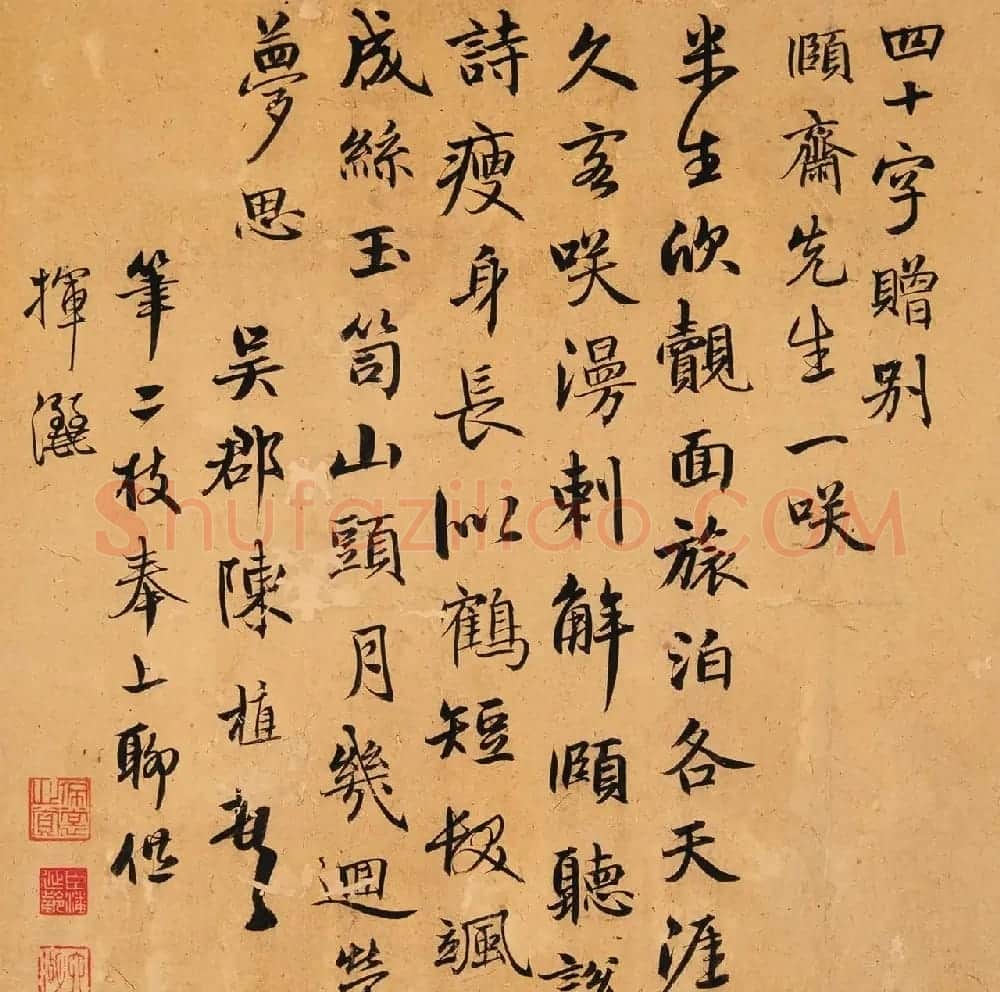 四十字贈别
頤齋先生一咲
半生欣覿面旅泊各天涯
久客咲漫刺解頤聽說
詩瘦身長似鶴短髮颯
成絲玉笥山頭月幾迴勞
夢思
吳郡陳植
筆二枝奉上聊供
揮灑
Shufaziliao.COM